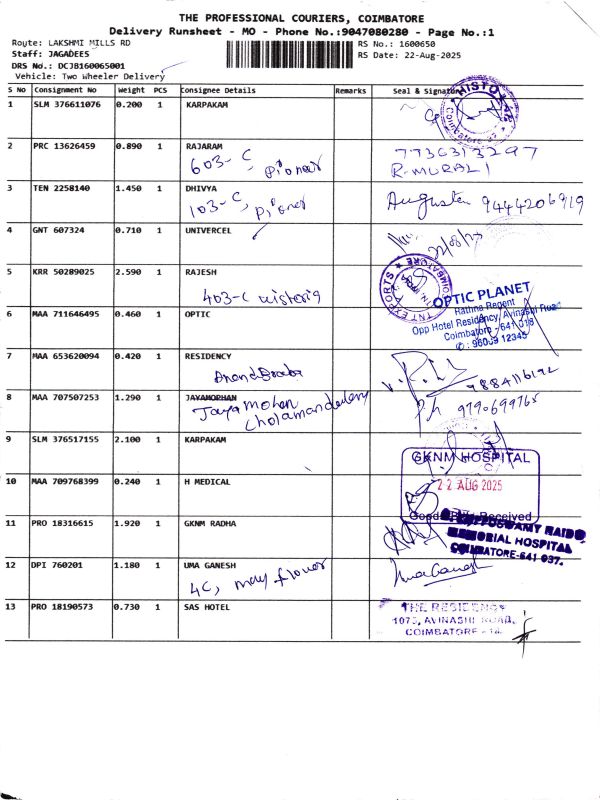 THE PROFESSIONAL COURIERS, COIMBATORE
Delivery Runsheet - MO - Phone No.:9047080280 - Page No.:1
Route: LAKSHMI MILLS RD
RS No.: 1600650
Staff: JAGADEES
RS Date: 22-Aug-2025
DRS No.: DCJB160065001
Vehicle: Two Wheeler Delivery
S No Consignment No Weight PCS Consignee Details Remarks Seal & Signature
1 SLM 376611076 0.200 1 KARPAKAM
2 PRC 13626459 0.890 1 RAJARAM
603-C, Pioneer
7736313297
R-MURALI
3 TEN 2258140 1.450 1 DHIVYA
103-C, Pioner
Augusten 9444206919
4 GNT 607324 0.710 1 UNIVERCEL
5 KRR 50289025 2.590 1 RAJESH
403-C wisteria
TNT EXPORTS
COIMBATORE
6 MAA 711646495 0.460 1 OPTIC
OPTIC PLANET
Rathna Regent
Opp Hotel Residency, Avinashi Road
Coimbatore - 641 018
7 MAA 653620094 0.420 1 RESIDENCY
9884116192
8 MAA 707507253 1.290 1 JAYAMORHAN
Jaya Mohan
Cholamandalam
Ph 9790699765
9 SLM 376517155 2.100 1 KARPAKAM
GKNM HOSPITAL
10 MAA 709768399 0.240 1 H MEDICAL
22 AUG 2025
Received
11 PRO 18316615 1.920 1 GKNM RADHA
G. KUPPUSWAMY NAIDU
MEMORIAL HOSPITAL
COIMBATORE-641 037.
12 DPI 760201 1.180 1 UMA GANESH
4C, May flower
Uma Ganesh
13 PRO 18190573 0.730 1 SAS HOTEL
THE RESIDENCY
1076, AVINASHI ROAD,
COIMBATORE - 18